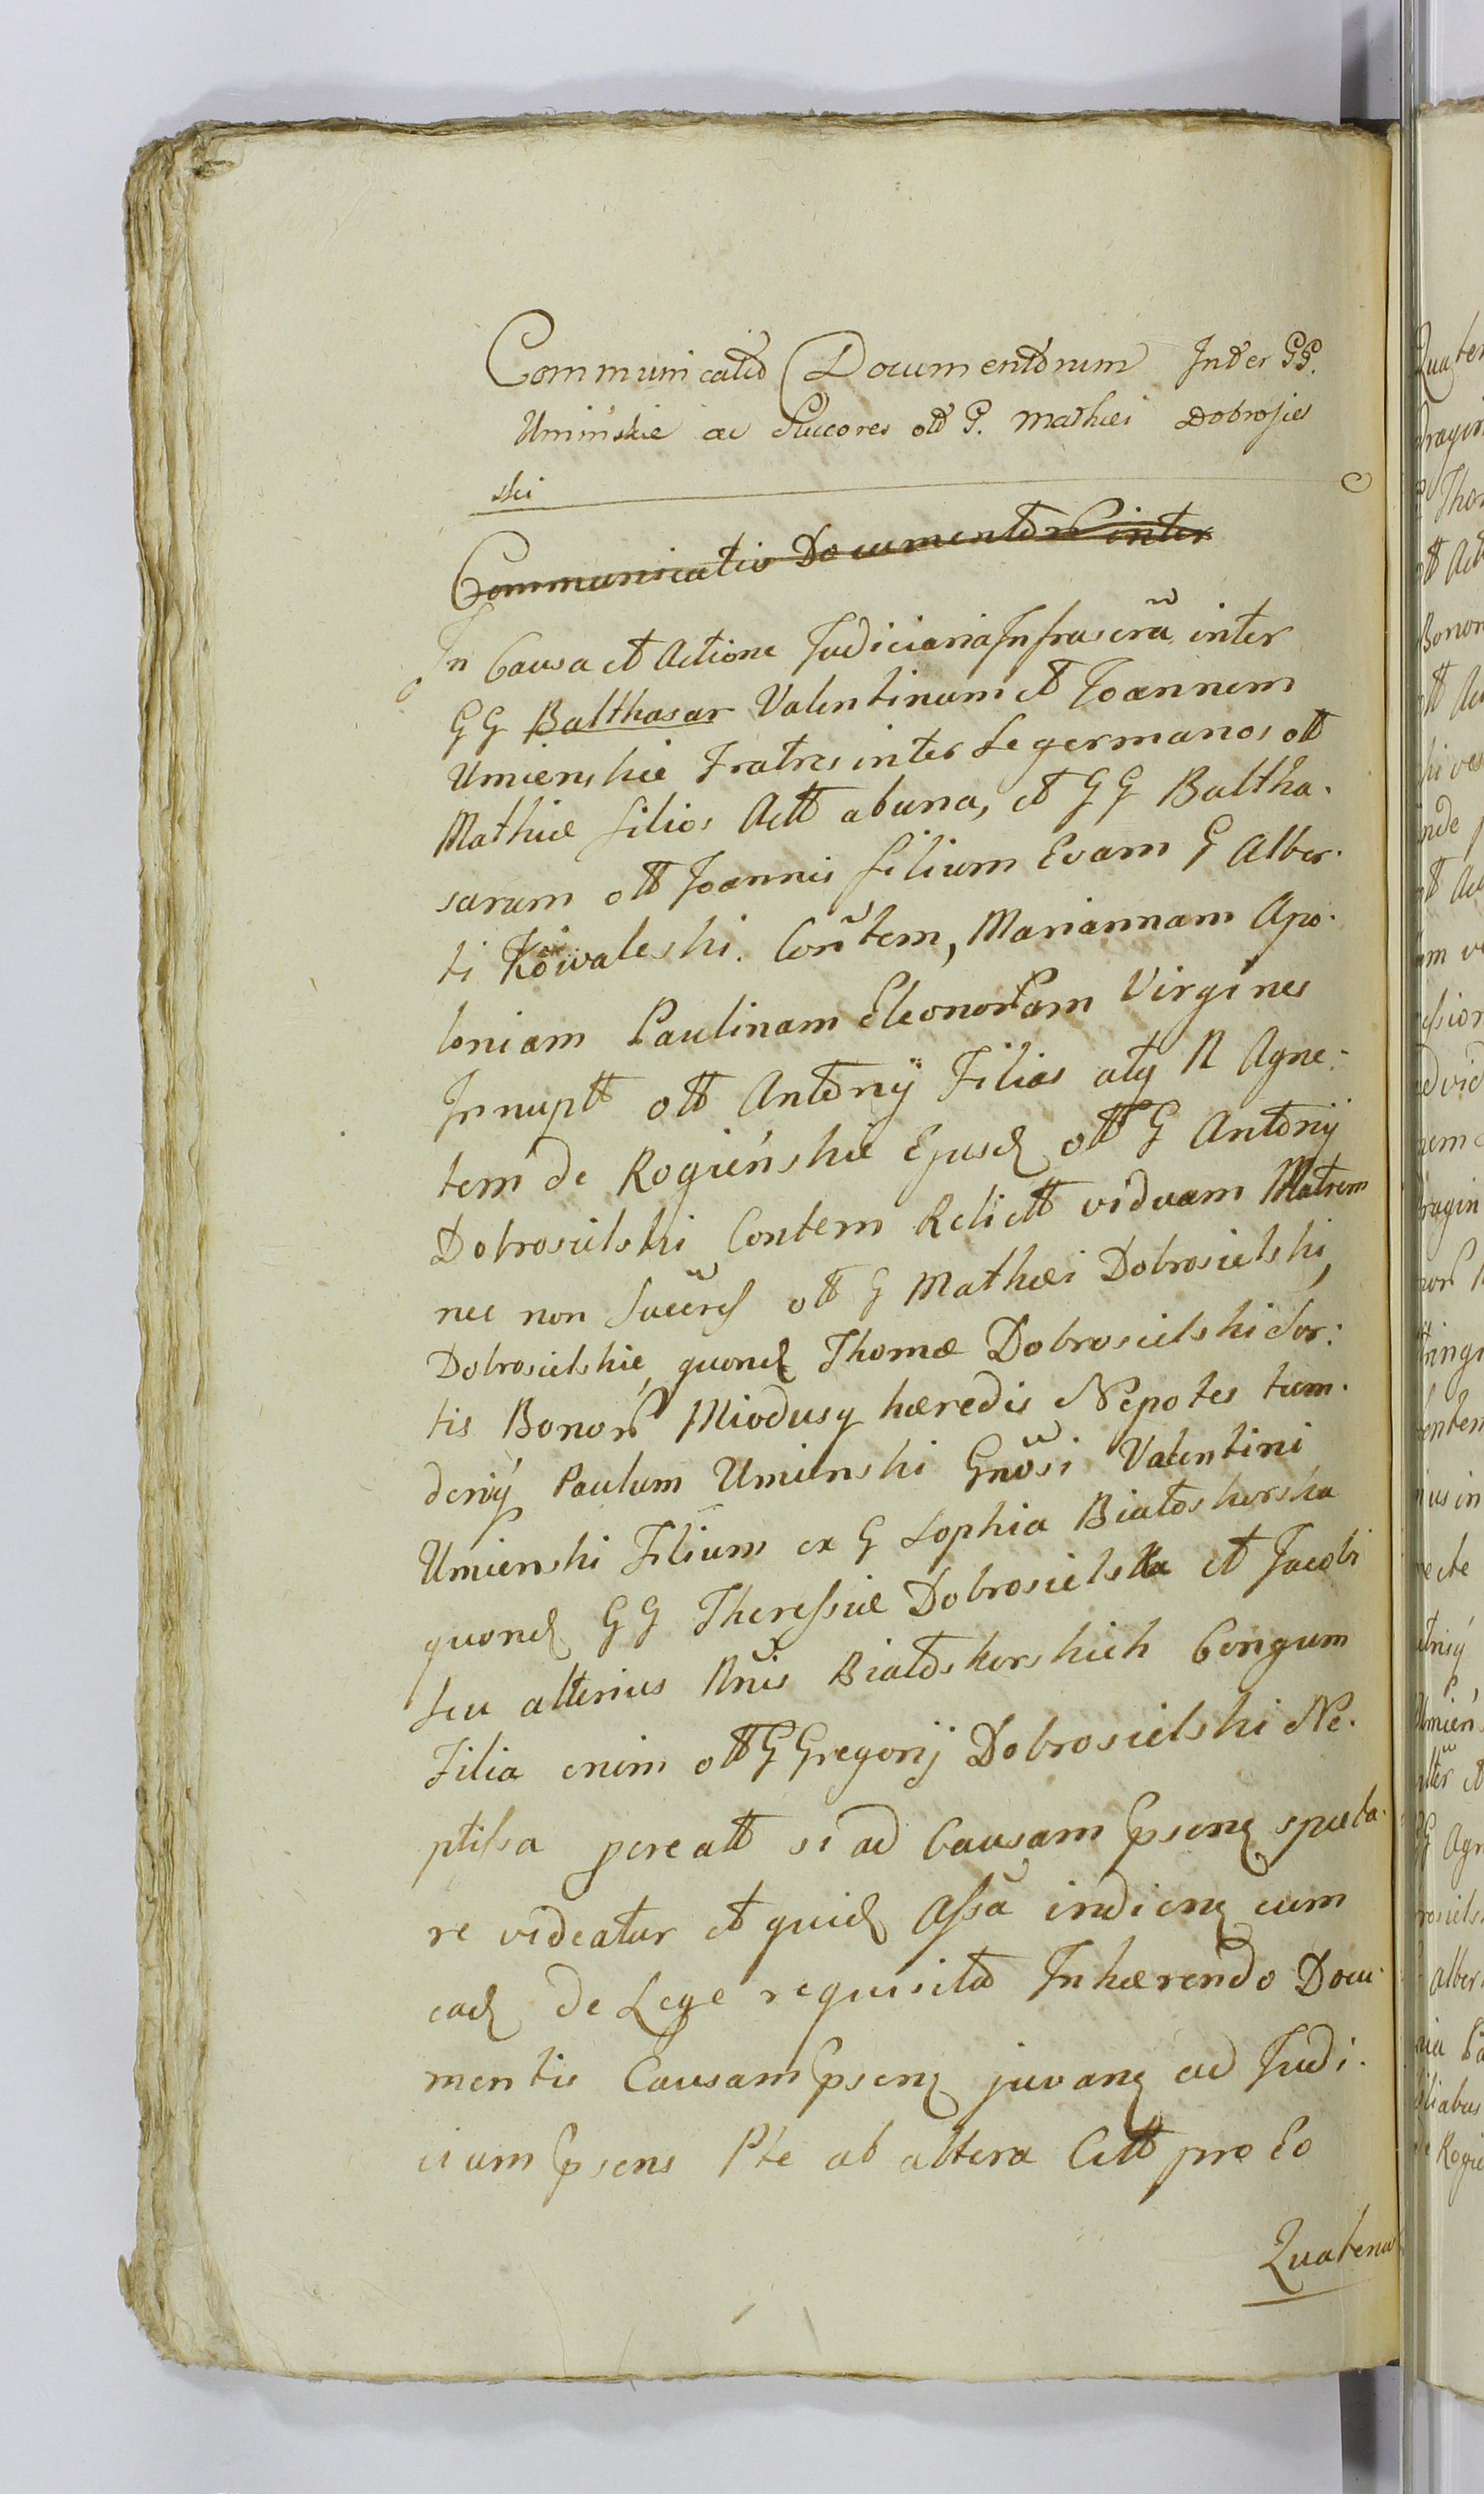 Communicatio Documentorum Inter GG.
Umińskie ac Succores olt G. Mathei Dobrosiel
ski
Communicatio Documentor inter
In Causa et Actione Judiciaria Infrascra inter
GG Balthasar Valentinum et Joannem
Umienskie Fratres inter se germanos olt
Mathiæ filios Actt ab una, et GG Baltha.
sarum olt Joannis filium Evam G Alber.
ti Kowaleski. Contem, Mariannam Apo.
loniam Paulinam Eleonoram Virgines
Innuptt olt Antonij Filias atq N Agne.
tem de Rogieńskie Ejusd olt G Antonij
Dobrosielski Contem Relictt viduam Matrem
nec non Succres olt G Mathæi Dobrosielski,
Dobrosielskie, quond Thomæ Dobrosielski Sor.
tis Bonor Miodusy hæredis Nepotes tum.
deniq Paulum Umienski Gnosi Valentini
Umienski Filium ex G Sophia Białoskorska
quond GG Theressiæ Dobrosielska et Jacobi
seu alterius Nnis Białoskorskich Congum
Filia enim olt G Gregorij Dobrosielski Ne.
ptissa pereatt si ad Causam psenz specta.
re videatur et quid Assa indienz cum
ead de Lege requisita Inhærendo Docu.
mentis Causam psenz juvanz ad Judi.
cium psens Pte ab altera Citt pro Eo
Quatenus